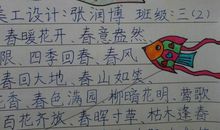 美工设计:张润博 班级:三(2)
春暖花开、春意盎然
限、四季回春、春风
春回大地、春山如笑、
春、春色满园、柳暗花明、莺歌
百花齐放、春晖寸草、枯木逢春